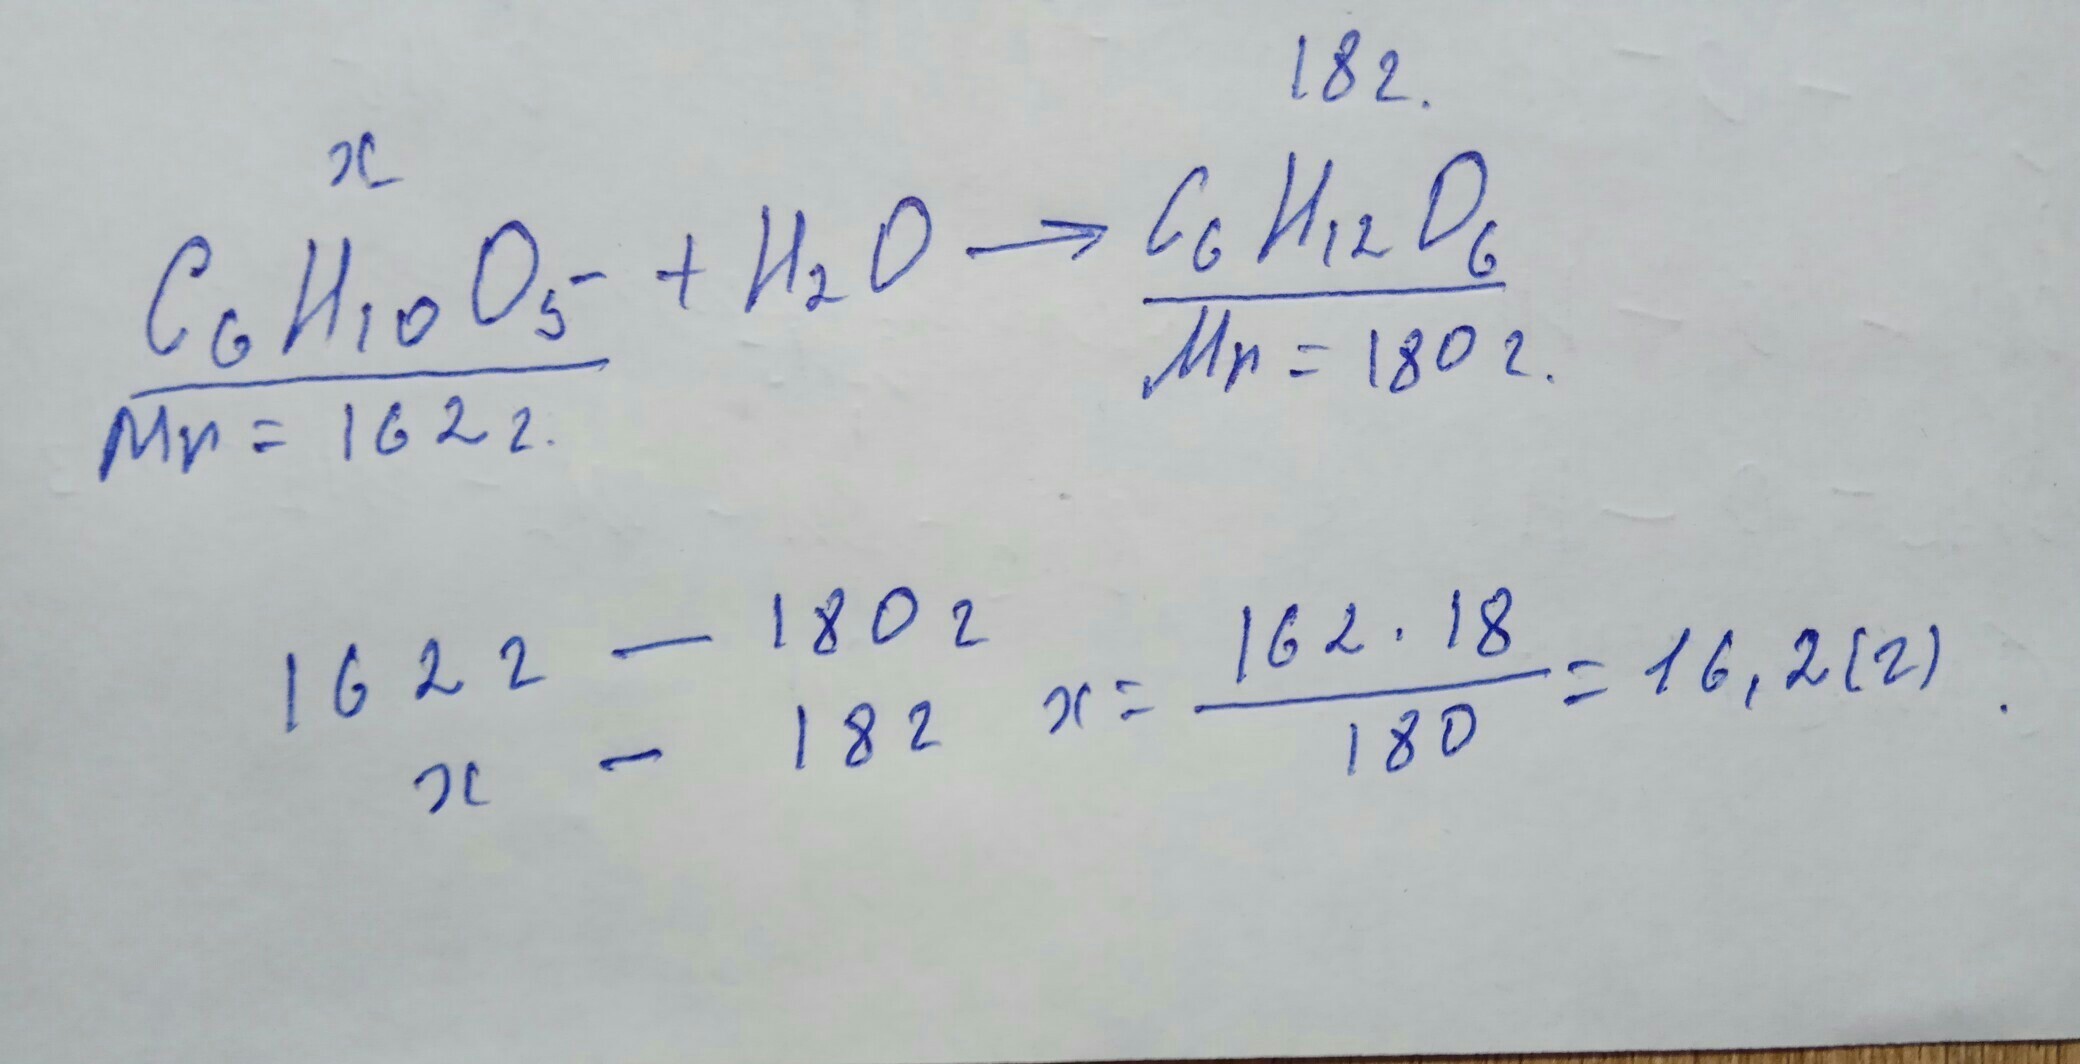 18г.
x
C₆H₁₀O₅ + H₂O → C₆H₁₂O₆
Mr = 162г. Mr = 180г.
162г — 180г
x — 18г x = 162·18/180 = 16,2(г).